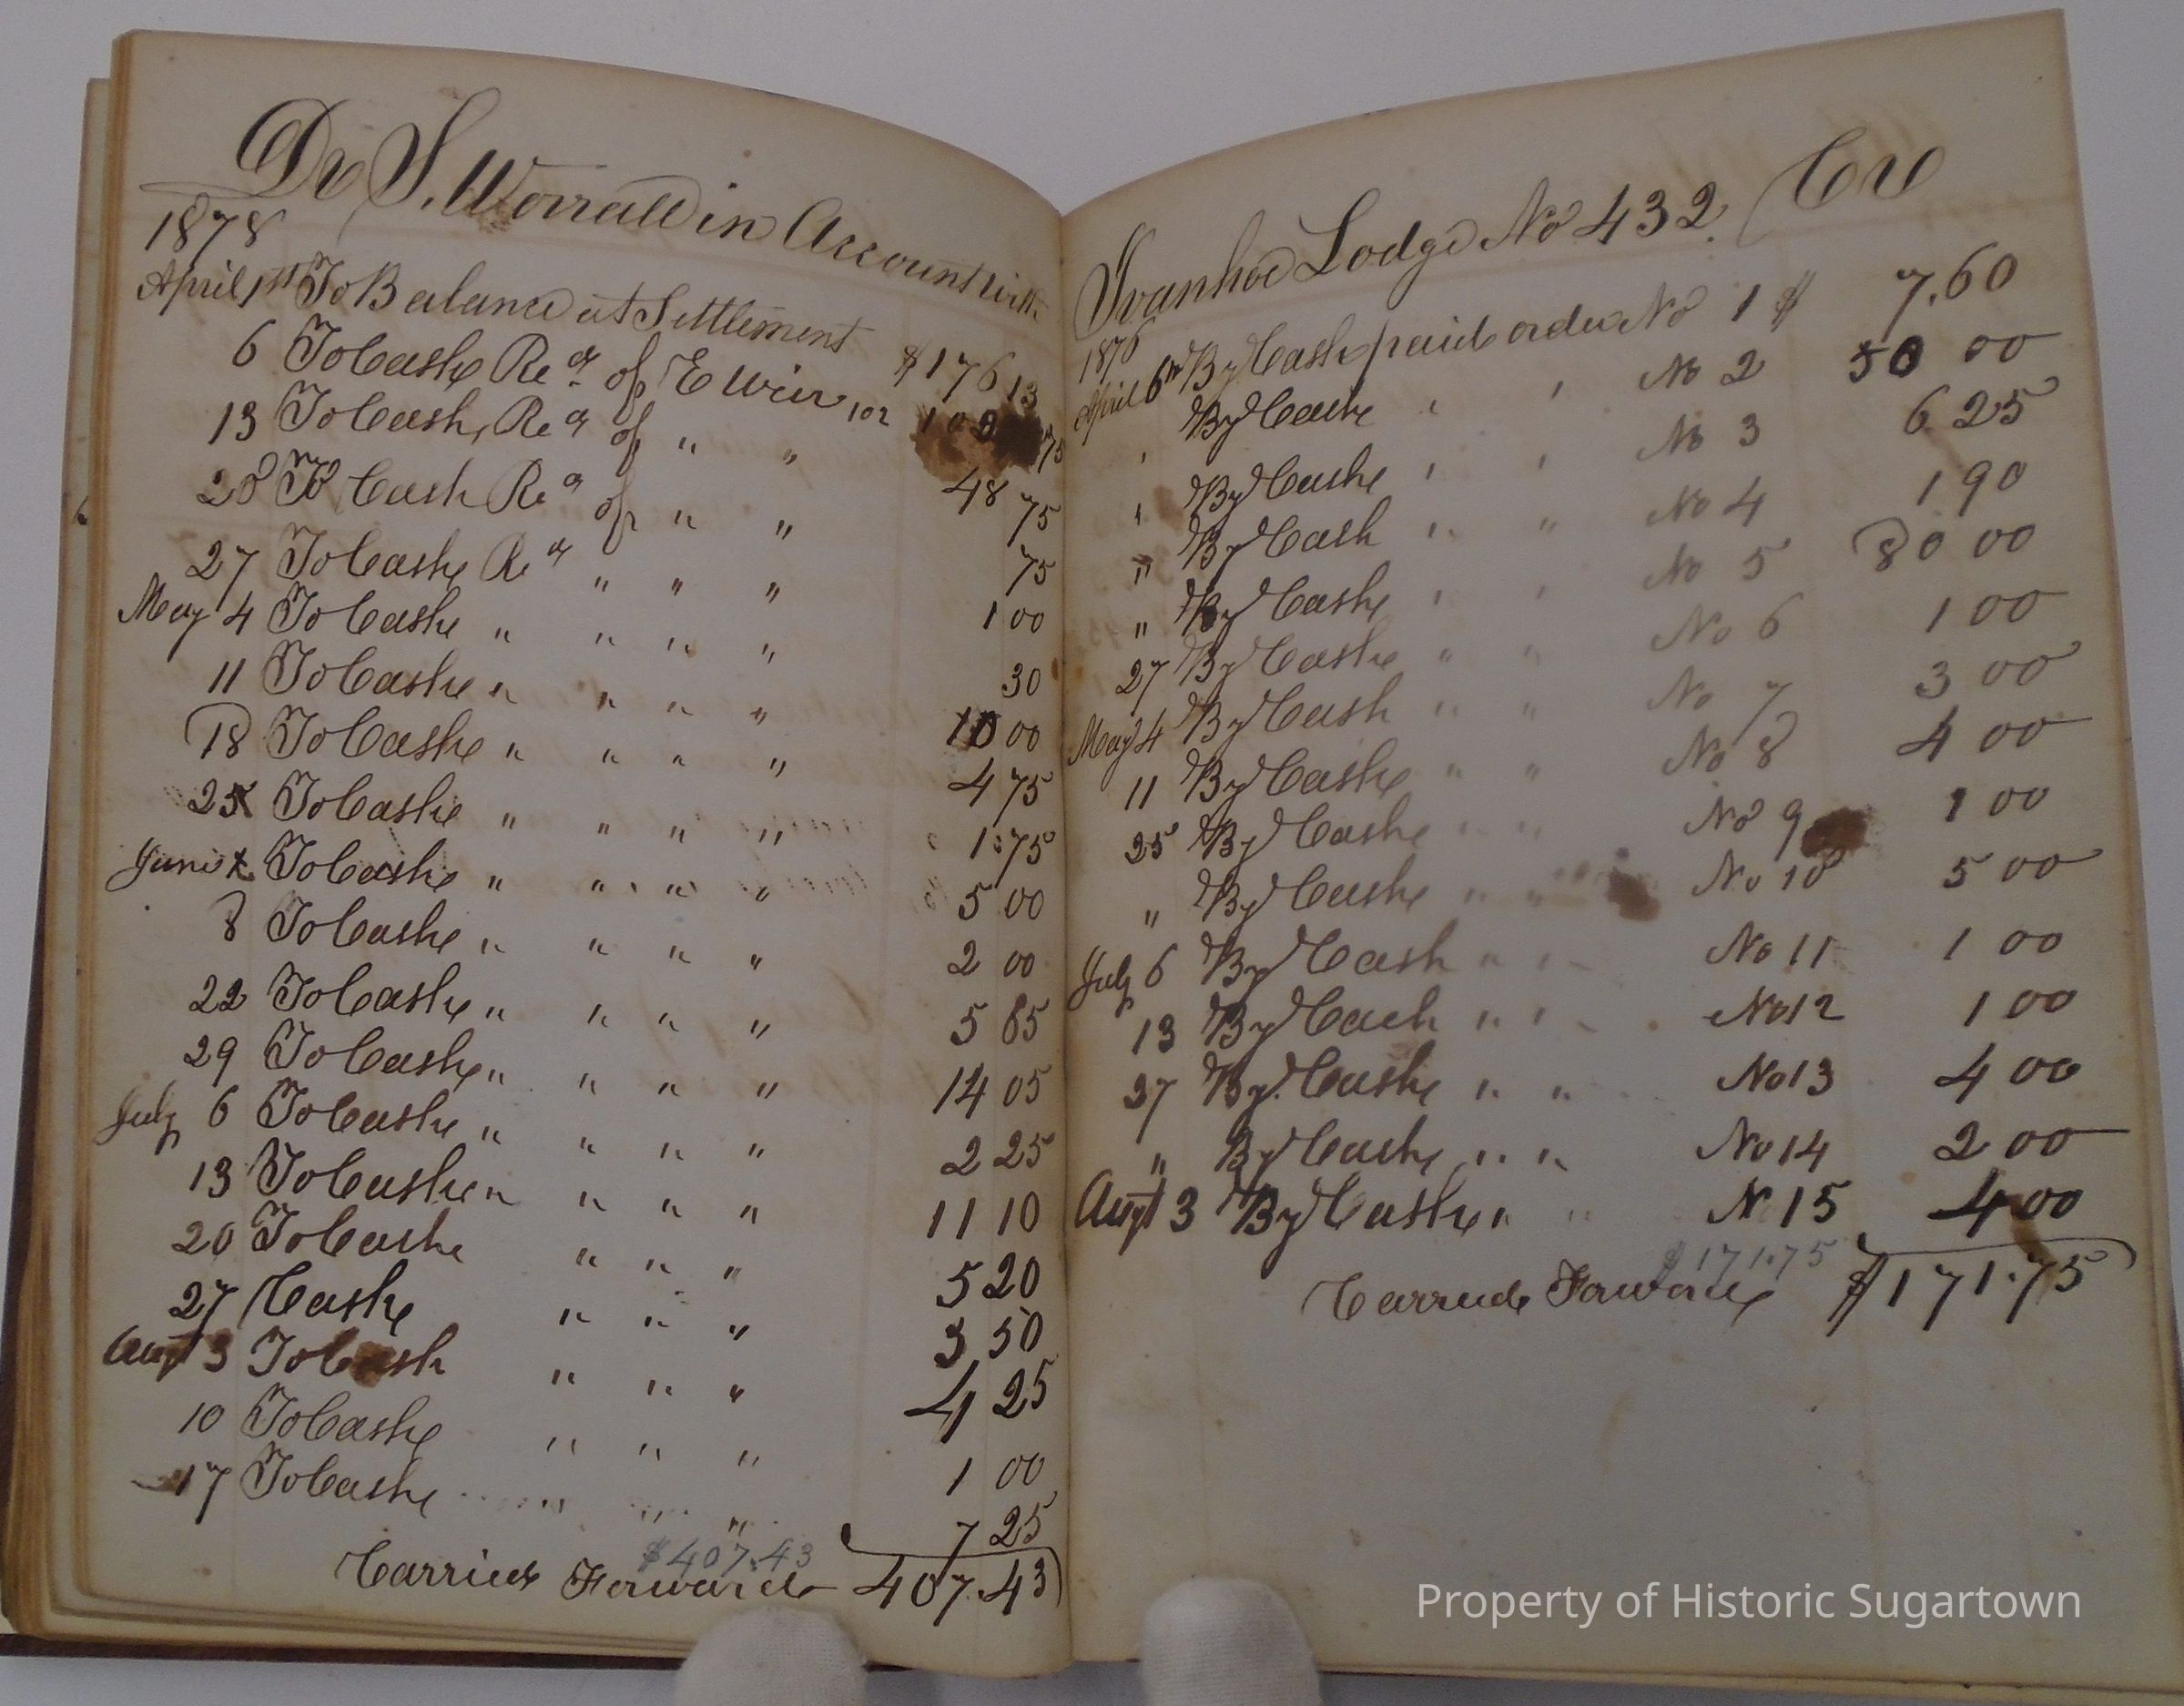 Dr S. Worrall in Account with
1878
April 1st To Balance at Settlement $176 13
6 To Cash Recd of E Weir 102 102 75
13 To Cash, Recd of " " 48 75
20 To Cash Recd of " " 75
27 To Cash Recd " " " 1 00
May 4 To Cash " " " " 30
11 To Cash " " " " 10 00
18 To Cash " " " " 4 75
25 To Cash " " " " 1:75
June 1 To Cash " " " " 5 00
8 To Cash " " " " 2 00
22 To Cash " " " " 5 65
29 To Cash " " " " 14 05
July 6 To Cash " " " " 2 25
13 To Cash " " " " 11 10
20 To Cash " " " 5 20
27 Cash " " " 3 50
Augt 3 To Cash " " " 4 25
10 To Cash " " " 1 00
17 To Cash " " 7 25
$407.43
Carried Forward 407.43
Ivanhoe Lodge No 432. Cr
1878
April 6th By Cash paid order No 1 $ 7.60
' By Cash ' ' No 2 50 00
' By Cash ' ' No 3 6 25
" By Cash " " No 4 1 90
" By Cash ' ' No 5 80 00
27 By Cash " " No 6 1 00
May 4 By Cash " " No 7 3 00
11 By Cash " " No 8 4 00
25 By Cash " " No 9 1 00
" By Cash " " No 10 5 00
July 6 By Cash " " No 11 1 00
13 By Cash " ' No 12 1 00
27 By. Cash " " No 13 4 00
" By Cash " " No 14 2 00
Augt 3 By Cash " " N 15 4 00
$171.75
Carried Forward $171.75
Property of Historic Sugartown